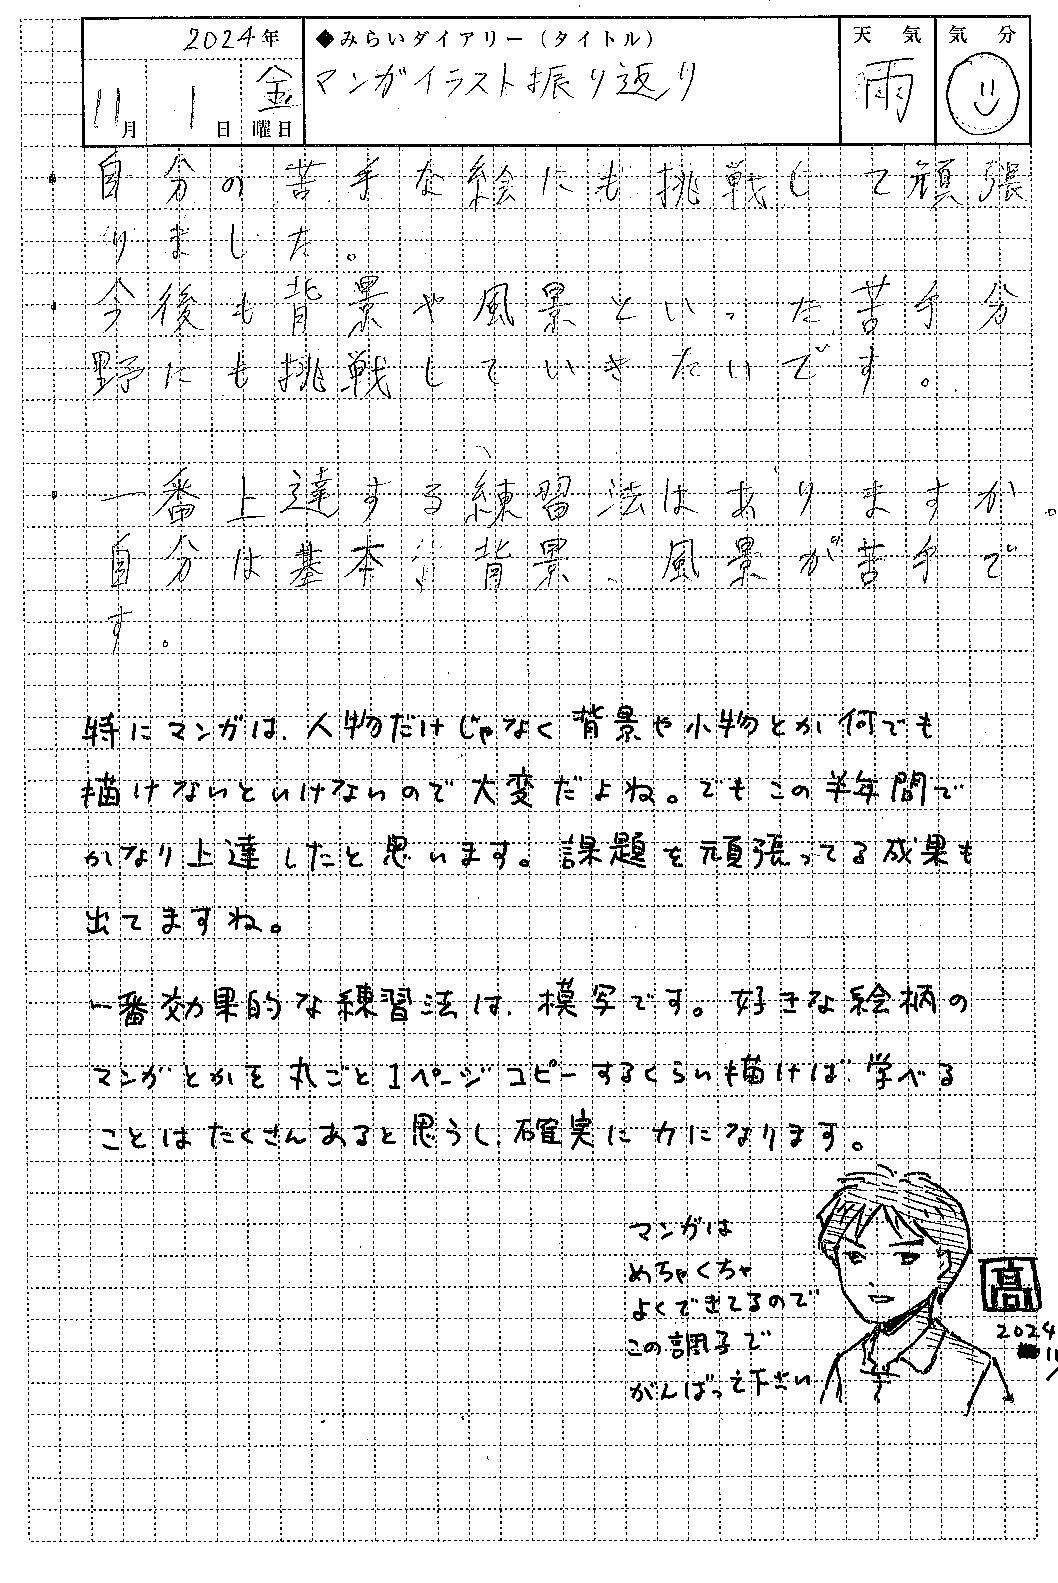 2024年
◆みらいダイアリー（タイトル）
天気
気分
11月 1日 金曜日
マンガイラスト振り返り
雨
・自分の苦手な絵にも挑戦して頑張
りました。
・今後も背景や風景といった苦手分
野にも挑戦していきたいです。
・一番上達する練習法はありますか。
自分は基本背景、風景が苦手で
す。
特にマンガは、人物だけじゃなく背景や小物とか何でも
描けないといけないので大変だよね。でもこの半年間で
かなり上達したと思います。課題を頑張ってる成果も
出てますね。
一番効果的な練習法は、模写です。好きな絵柄の
マンガとかを丸ごと1ページコピーするくらい描けば、学べる
ことはたくさんあると思うし、確実に力になります。
マンガは
めちゃくちゃ
よくできてるので
この調子で
がんばって下さい
高
2024
11/